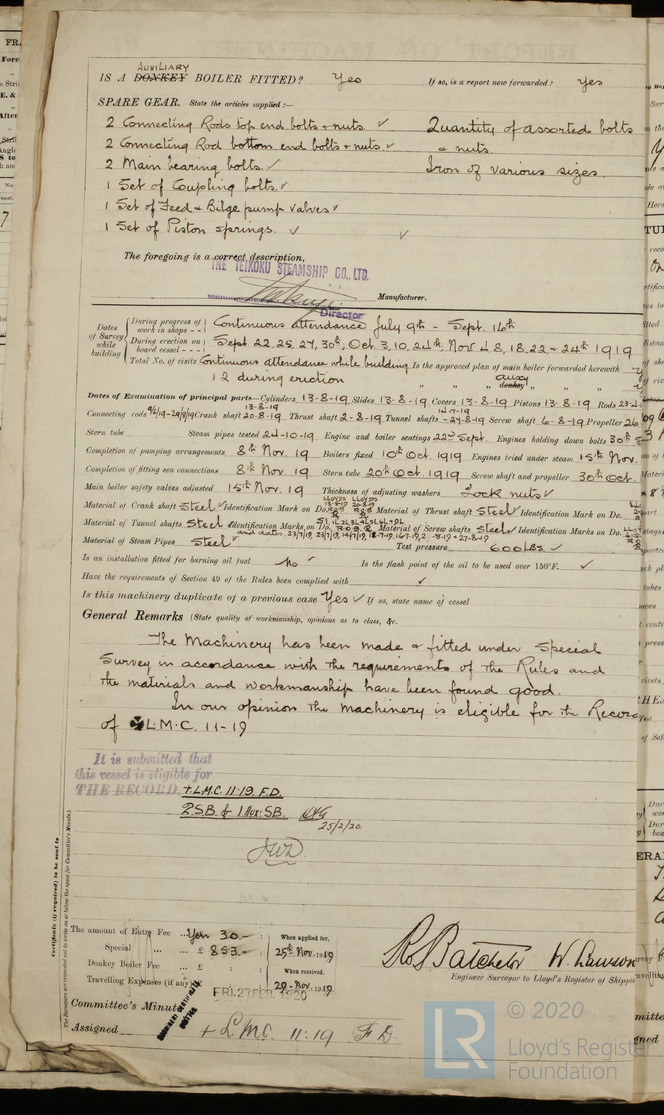 AUXILIARY
IS A DONKEY BOILER FITTED? Yes If so, is a report now forwarded? yes
SPARE GEAR. State the articles supplied :—
2 Connecting Rods top end bolts + nuts. ✓ Quantity of assorted bolts
2 Connecting Rod bottom end bolts + nuts. ✓ + nuts.
2 Main bearing bolts. ✓ Iron of various sizes.
1 Set of Coupling bolts. ✓
1 Set of Feed + Bilge pump valves ✓
1 Set of Piston springs. ✓ ✓
The foregoing is a correct description,
THE TEIKOKU STEAMSHIP CO., LTD.
Manufacturer.
Director
Dates of Survey while building
During progress of work in shops - - Continuous attendance July 9th - Sept. 16th
During erection on board vessel - - - Sept 22. 25. 27, 30th, Oct 3. 10. 24th, Nov 4 8, 18. 22 + 24th 1919
Total No. of visits Continuous attendance while building Is the approved plan of main boiler forwarded herewith
12 during erection " " auxy donkey " "
Dates of Examination of principal parts—Cylinders 13-8-19 Slides 13-8-19 Covers 13-8-19 Pistons 13-8-19 Rods
13-8-19
Connecting rods Crank shaft 20-8-19 Thrust shaft 2-8-19 Tunnel shafts -24-8-19 Screw shaft 6-8-19 Propeller
Stern tube Steam pipes tested 24-10-19 Engine and boiler seatings 22nd Sept. Engines holding down bolts 30th
Completion of pumping arrangements 8th Nov. 19 Boilers fixed 10th Oct. 1919 Engines tried under steam 15th Nov.
Completion of fitting sea connections 8th Nov. 19 Stern tube 20th Oct. 1919 Screw shaft and propeller 30th Oct.
Main boiler safety valves adjusted 15th Nov. 19 Thickness of adjusting washers Lock nuts ✓
Material of Crank shaft Steel ✓ Identification Mark on Do. Material of Thrust shaft Steel ✓ Identification Mark on Do.
Material of Tunnel shafts Steel Identification Marks on Do. Material of Screw shafts Steel ✓ Identification Marks on Do.
Material of Steam Pipes Steel ✓ Test pressure 600 Lbs ✓
Is an installation fitted for burning oil fuel No ✓ Is the flash point of the oil to be used over 150°F. ✓
Have the requirements of Section 49 of the Rules been complied with ✓
Is this machinery duplicate of a previous case Yes ✓ If so, state name of vessel
General Remarks (State quality of workmanship, opinions as to class, &c.
The Machinery has been made & fitted under Special
Survey in accordance with the requirements of the Rules and
the materials and workmanship have been found good.
In our opinion the machinery is eligible for the Record
of ✠ L.M.C. 11-19
It is submitted that
this vessel is eligible for
THE RECORD. + L.M.C. 11.19. F.D.
2.S.B. & 1 Aux. S.B.
25/2/20.
The amount of Entry Fee ... Yen 30.— : When applied for,
Special ... ... £ 853.— : 25th Nov. 1919
Donkey Boiler Fee ... £ : : When received.
Travelling Expenses (if any) 29-Nov. 1919
Committee's Minute FRI. 27 FEB 1920
Assigned + L.M.C. 11:19 F.D.
R. S. Batchelor W. Dawson
Engineer Surveyor to Lloyd's Register of Shipping
Certificate (if required) to be sent to
The Surveyors are requested not to write on or below the space for Committee's Minute.
© 2020
LR Lloyd's Register
Foundation